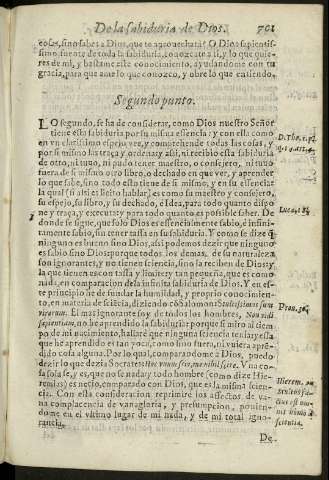 De la sabiduria de Dios. 701
cosas, sino sabes a Dios, que te aprovechará? O Dios sapientissi-
simo, fuente de toda la sabiduria, conozcate a ti, y lo que quie-
res de mi, y bastame este conocimiento, ayudandome con tu
gracia, para que ame lo que conozco, y obre lo que entiendo.
Segundo punto.
LO segundo, se ha de considerar, como Dios nuestro Señor
tiene esta sabiduria por su misma essencia: y con ella como
en vn clarissimo espejo vee, y comprehende todas las cosas, y
por si mismo las traça y ordena: y assi, ni recibio esta sabiduria
de otro, ni tuuo, ni pudo tener maestro, o consejero, ni tuuo
fuera de si mismo otro libro, o dechado en que ver, y aprender
lo que sabe, sino todo esto tiene de si mismo, y en su essencia:
la qual (si assi es Señor hablar) es como su maestro y consejero,
su espejo, su libro, y su dechado, è Idea, para todo quanto dispo-
ne y traça, y executa: y para todo quanto es possible saber. De
donde se sigue, que solo Dios es essencialmente sabio, é infini-
tamente sabio, sin tener tassa en su sabiduria. Y como se dize que
ninguno es bueno sino Dios, assi podemos dezir que ninguno
es sabio sino Dios: porque todos los demas, de su naturaleza
son ignorantes, y no tienen sciencia, sino la reciben de Dios: y
la que tienen es con tassa y limite: y tan pequeña, que es como
nada, en comparacion de la infinita sabiduria de Dios. Y en es-
te principio he de fundar la humildad, y proprio conocimien-
to, en materia de sciencia, diziendo como Salomon: Stultissimus sum
virorum. El mas ignorante soy de todos los hombres, Non didi
sapientiam, no he aprendido la sabiduria: porque si miro al tiem-
po de mi nacimiento, hallaré que ninguna sciencia tenia: y essa
que he aprendido es tan poca, como sino fuera, ni vuiera apren-
dido cosa alguna. Por lo qual, comparandome a Dios, puedo
dezir lo que dezia Socrates: Hoc vnum scio, me nihil scire. Vna co-
sa sola se, y es, que no se nada: y todo hombre (como dize Hie-
remias) es necio, comparado con Dios, que es la misma scien-
cia. Con esta consideracion reprimire los affectos de va-
na complacencia de vanagloria, y presumpcion, ponien-
dome en el vltimo lugar de mi nada, y de mi total igno-
rancia.
De-
Luc. 18
Prou. 30.
Hierem. 10